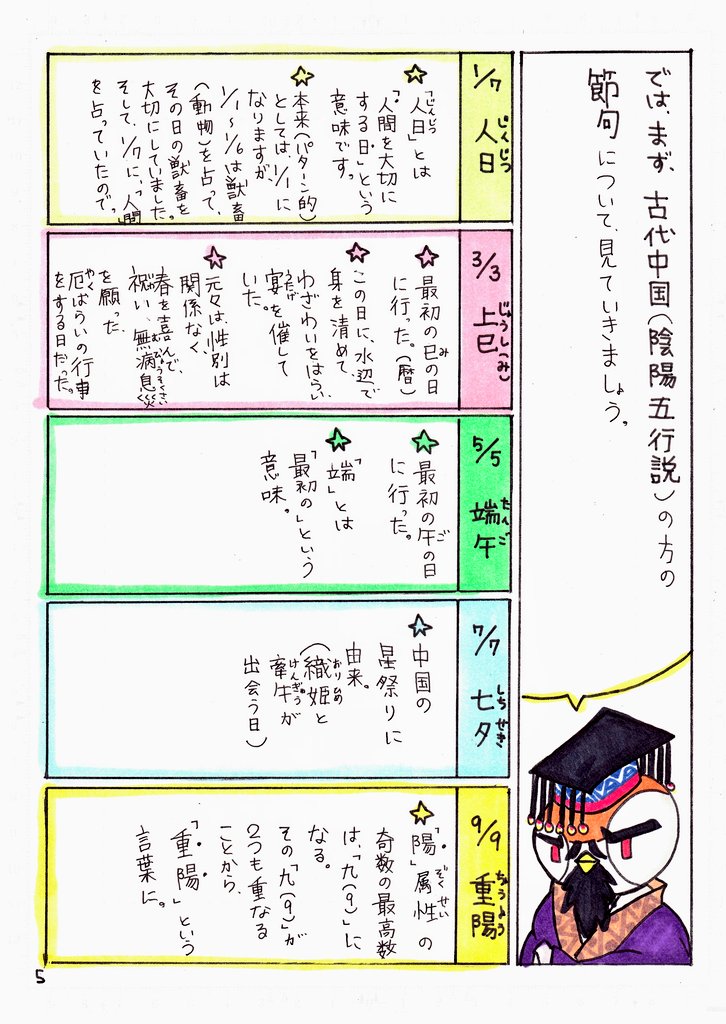 では、まず、古代中国(陰陽五行説)の方の
節句について、見ていきましょう。
1/7 人日
じんじつ
「人日」とは
じんじつ
「人間を大切に
する日」という
意味です。
本来(パターン的)
としては、1/1に
なりますが、
1/1〜1/6は獣畜
(動物)を占って、
その日の獣畜を
大切にしていました。
そして、1/7に、「人間」
を占っていたので。
3/3 上巳
じょうし(み)
最初の巳の日
み
に行った。(暦)
この日に、水辺で
身を清めて、
わざわいをはらい、
宴を催して
うたげ
いた。
元々は、性別は
関係なく、
春を喜んで、
祝い、無病息災
むびょうそくさい
を願った、
厄ばらいの行事
やく
をする日だった。
5/5 端午
たんご
最初の午の日
ご
に行った。
「端」とは
「最初の」という
意味。
7/7 七夕
しちせき
中国の
星祭りに
由来。
(織姫と
おりひめ
牽牛が
けんぎゅう
出会う日)
9/9 重陽
ちょうよう
「陽」属性の
ぞくせい
奇数の最高数
は、「九(9)」に
なる。
その「九(9)」が
2つも重なる
ことから、
「重陽」という
言葉に。
5